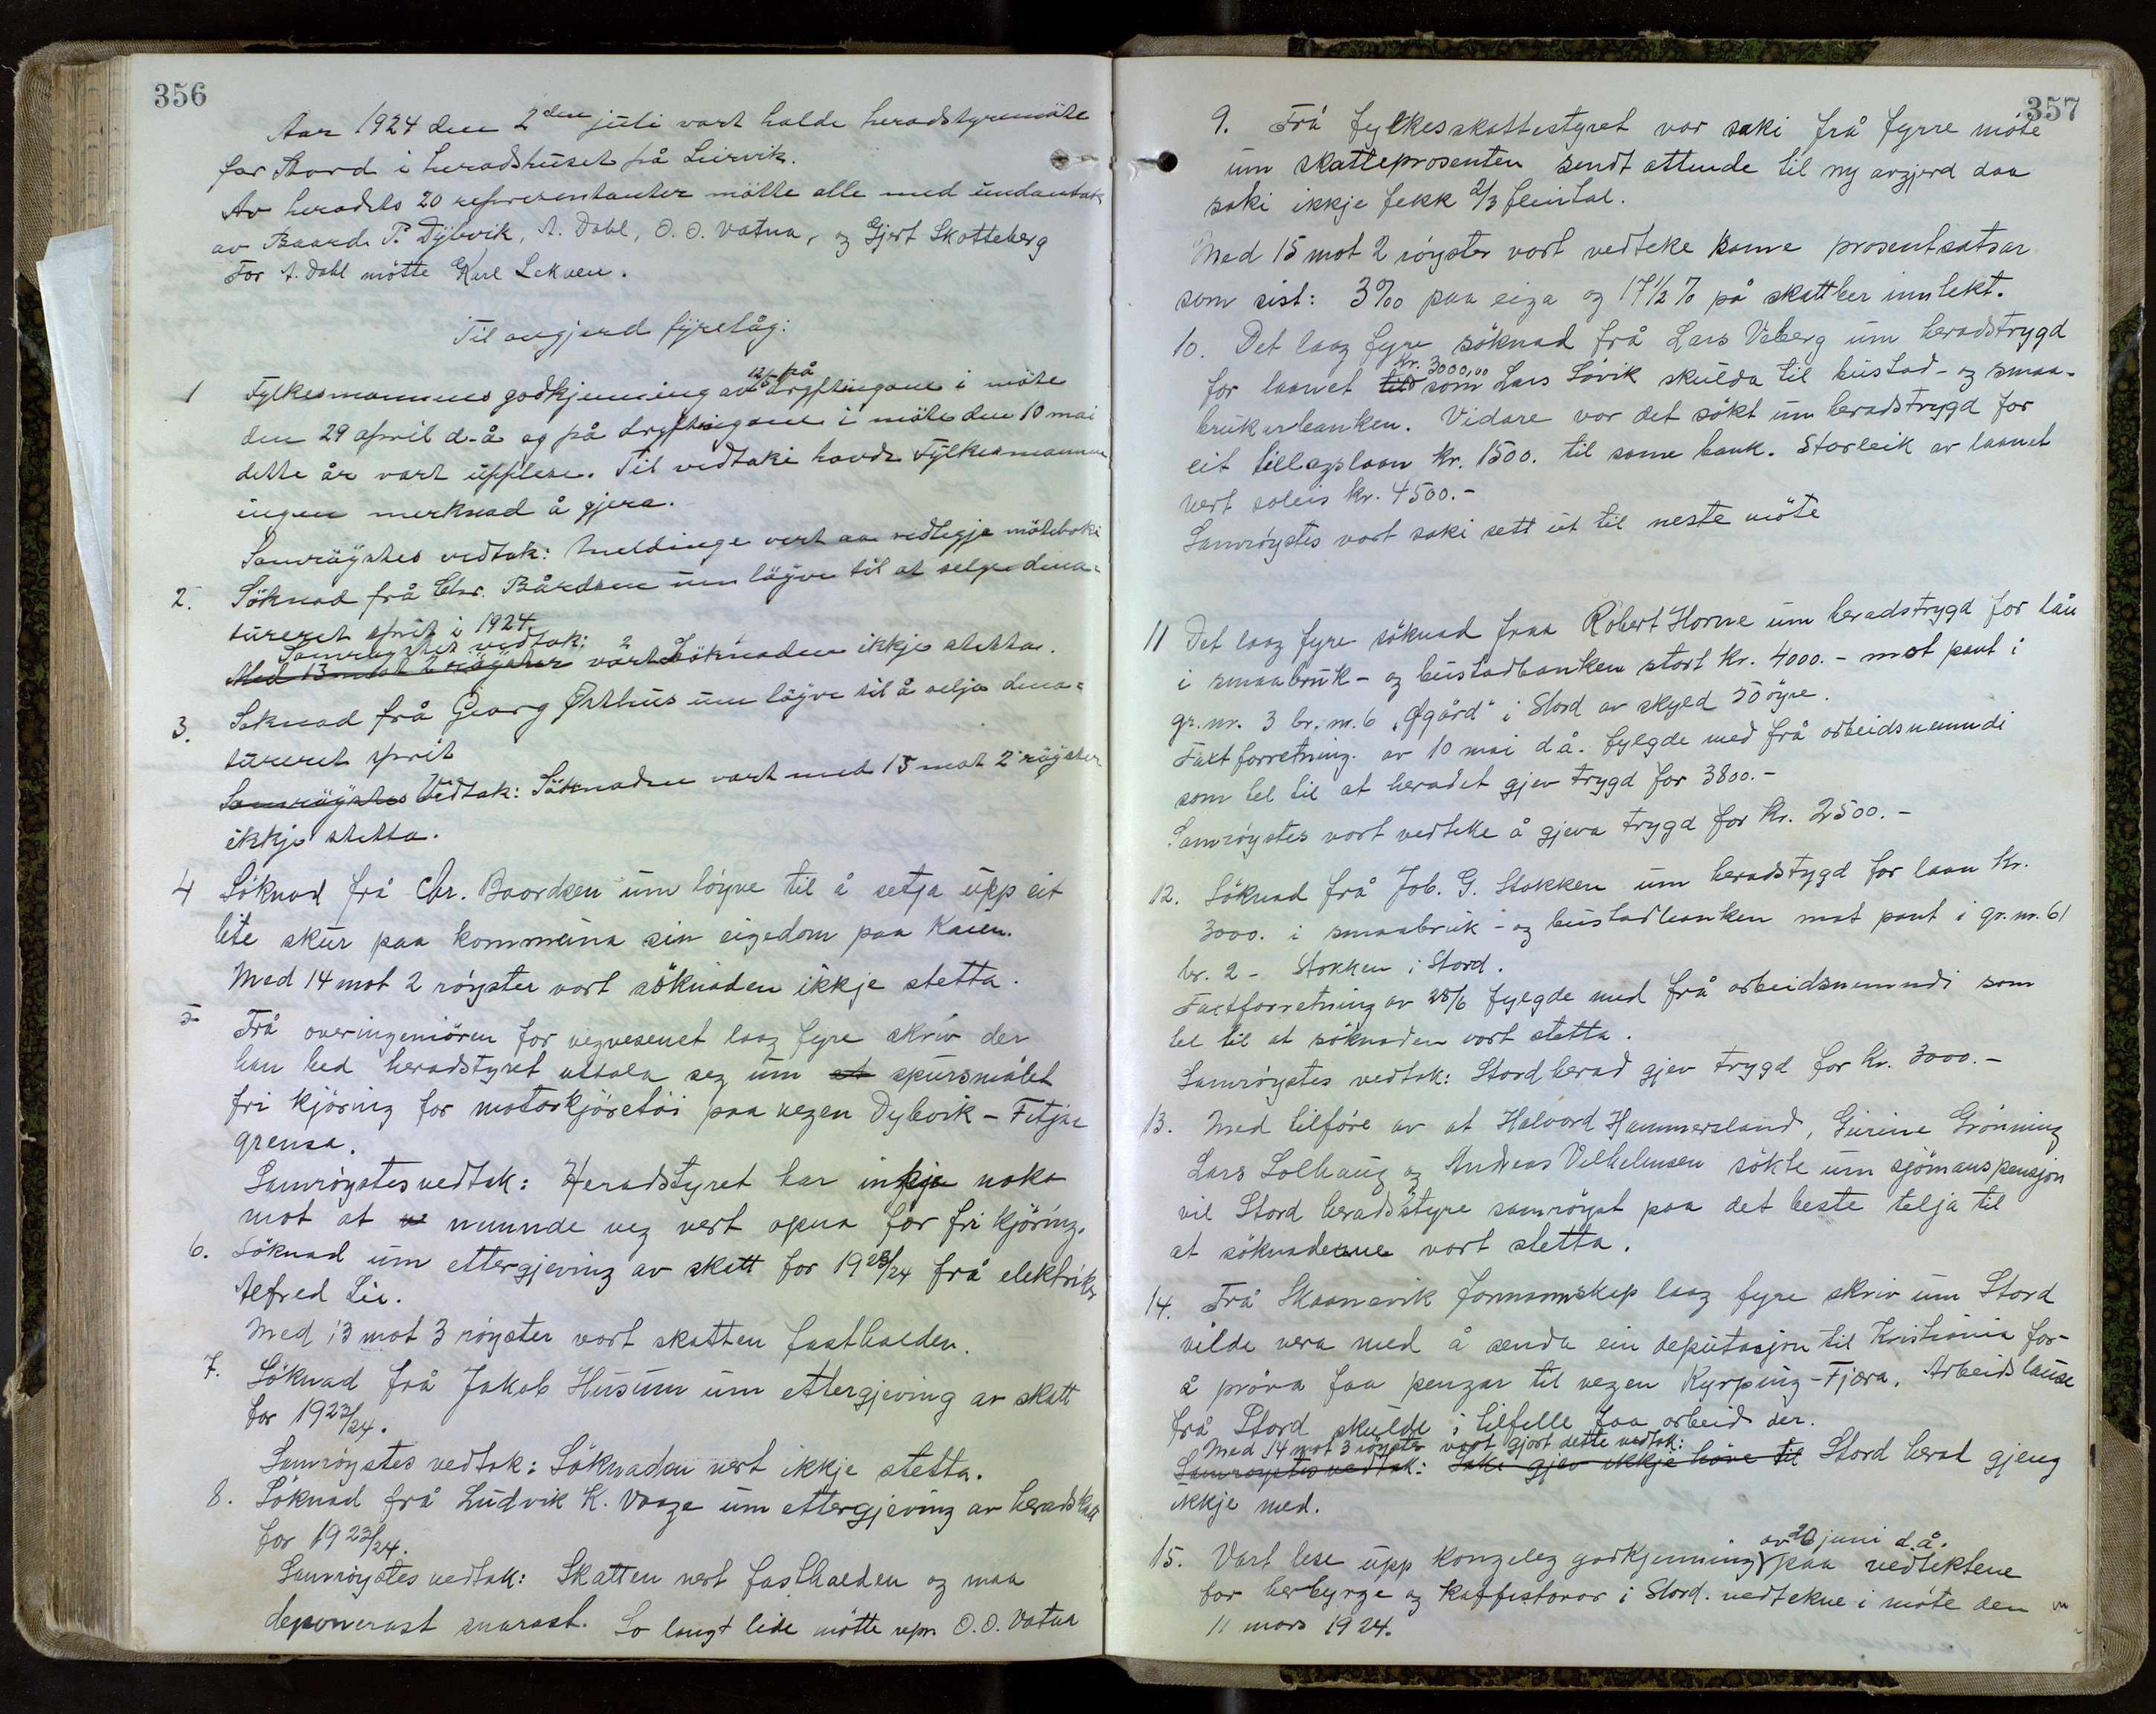 356
Aar 1924 den 2den juli vart halde heradstyremöte
for Stord i heradshuset på Leirvik.
Av heradets 20 representanter mötte alle med undantak
av Baard P. Dybvik, A. Dahl, O. O. Vatna, og Gjert Skotteberg
For A. Dahl mötte Karl Lekven.
Til avgjerd fyrelåg:
1 Fylkesmannens godkjenning av 12/5 på dryftingane i möte
den 29 april d-å og på dryftingane i möte den 10 mai
dette år vart upplese. Til vedtaki havde Fylkesmannen
ingen merknad å gjera.
Samröystes vedtak: Meldinge vert aa vedlegja möteboki
2. Söknad frå Chr. Bårdsen um löyve til at selge dena-
turert sprit i 1924.
Samröystes vedtak:
Med 13 mot 2 röyster vart Söknaden ikkje stetta.
3. Söknad frå Georg Østhus um löyve til å selja dena-
turert sprit
Samröystes Vedtak: Söknaden vart med 15 mot 2 röyster
ikkje stetta.
4 Söknad frå Chr. Baardsen um löyve til å setja upp eit
lite skur paa kommuna sin eigedom paa Kaien.
Med 14 mot 2 röyster vart söknaden ikkje stetta.
5 Frå overingeniören for vegvesenet laag fyre skriv der
han bed heradstyret uttala seg um et spursmålet
fri kjöring for motorkjöretöi paa vegen Dybvik - Fitjar
grensa.
Samröystes vedtak: Heradstyret har inkje noko
mot at ve nemnde veg vert opna for fri kjöring.
6. Söknad um ettergjeving av skatt for 1923/24 frå elektriker
Alfred Lie.
Med 13 mot 3 röyster vort skatten fasthalden.
7. Söknad frå Jakob Husum um ettergjeving av skatt
for 1923/24.
Samröystes vedtak: Söknaden vert ikkje stetta.
8. Söknad frå Ludvik K. Vaage um ettergjeving av heradskatt
for 1923/24.
Samröystes vedtak: Skatten vert fasthalden og maa
deponerast snarast. So langt lide mötte repr. O. O. Vatna
357
9. Frå fylkesskattestyret var saki frå fyrre möte
um skatteprosenten sendt attende til ny avgjerd daa
saki ikkje fekk 2/3 fleirtal.
Med 15 mot 2 röyster vort vedteke same prosentsatsar
som sist: 3‰ paa eiga og 17 1/2 % på skattber inntekt.
10. Det laag fyre söknad frå Lars Væberg um heradstrygd
kr. 3000,00
for laanet till som Lars Lövik skulda til bustad- og smaa-
brukarbanken. Vidare var det sökt um heradstrygd for
eit tillegslaan kr. 1500. til same bank. Storleik av laanet
vert soleis kr. 4500.-
Samröystes vort saki sett ut til neste möte
11 Det laag fyre söknad fraa Robert Horne um heradstrygd for lån
i smaabruk- og bustadbanken stort kr. 4000.- mot pant i
gr. nr. 3 br. nr. 6 "Øgård" i Stord av skyld 50 öyre.
Taxtforretning. av 10 mai d.å. fylgde med frå arbeidsnemndi
som tel til at heradet gjev trygd for 3800.-
Samröystes vort vedteke å gjeva trygd for kr. 2500.-
12. Söknad frå Job. G. Stokken um heradstygd for laan kr.
3000. i smaabruk- og bustadbanken mot pant i gr. nr. 61
br. 2 - Stokken i Stord.
Taxtforretning av 28/6 fylgde med frå arbeidsnemndi som
tel til at söknaden vort stetta.
Samröystes vedtak: Stord herad gjev trygd for kr. 3000.-
13. Med tilföre av at Halvord Hammersland, Gurine Grönning
Lars Solhaug og Andreas Vilhelmsen sökte um sjömanspensjon
vil Stord heradstyre samröyst paa det beste telja til
at söknadene vort stetta.
14. Frå Skaanevik formannskap laag fyre skriv um Stord
vilde vera med å senda ein deputasjon til Kristiania for-
å pröva faa pengar til vegen Kyrping-Fjæra. Arbeidslause
frå Stord skulde i tilfelle faa arbeid der.
Med 14 mot 3 röyster vart gjort dette vedtak:
Samröystes vedtak: Saki gjev ikkje höve til Stord herad gjeng
ikkje med.
av 20 juni d.å.
15. Vart lese upp kongeleg godkjenning paa vedtektene
for herbyrge og kaffistovor i Stord. vedtekne i möte den
11 mars 1924.